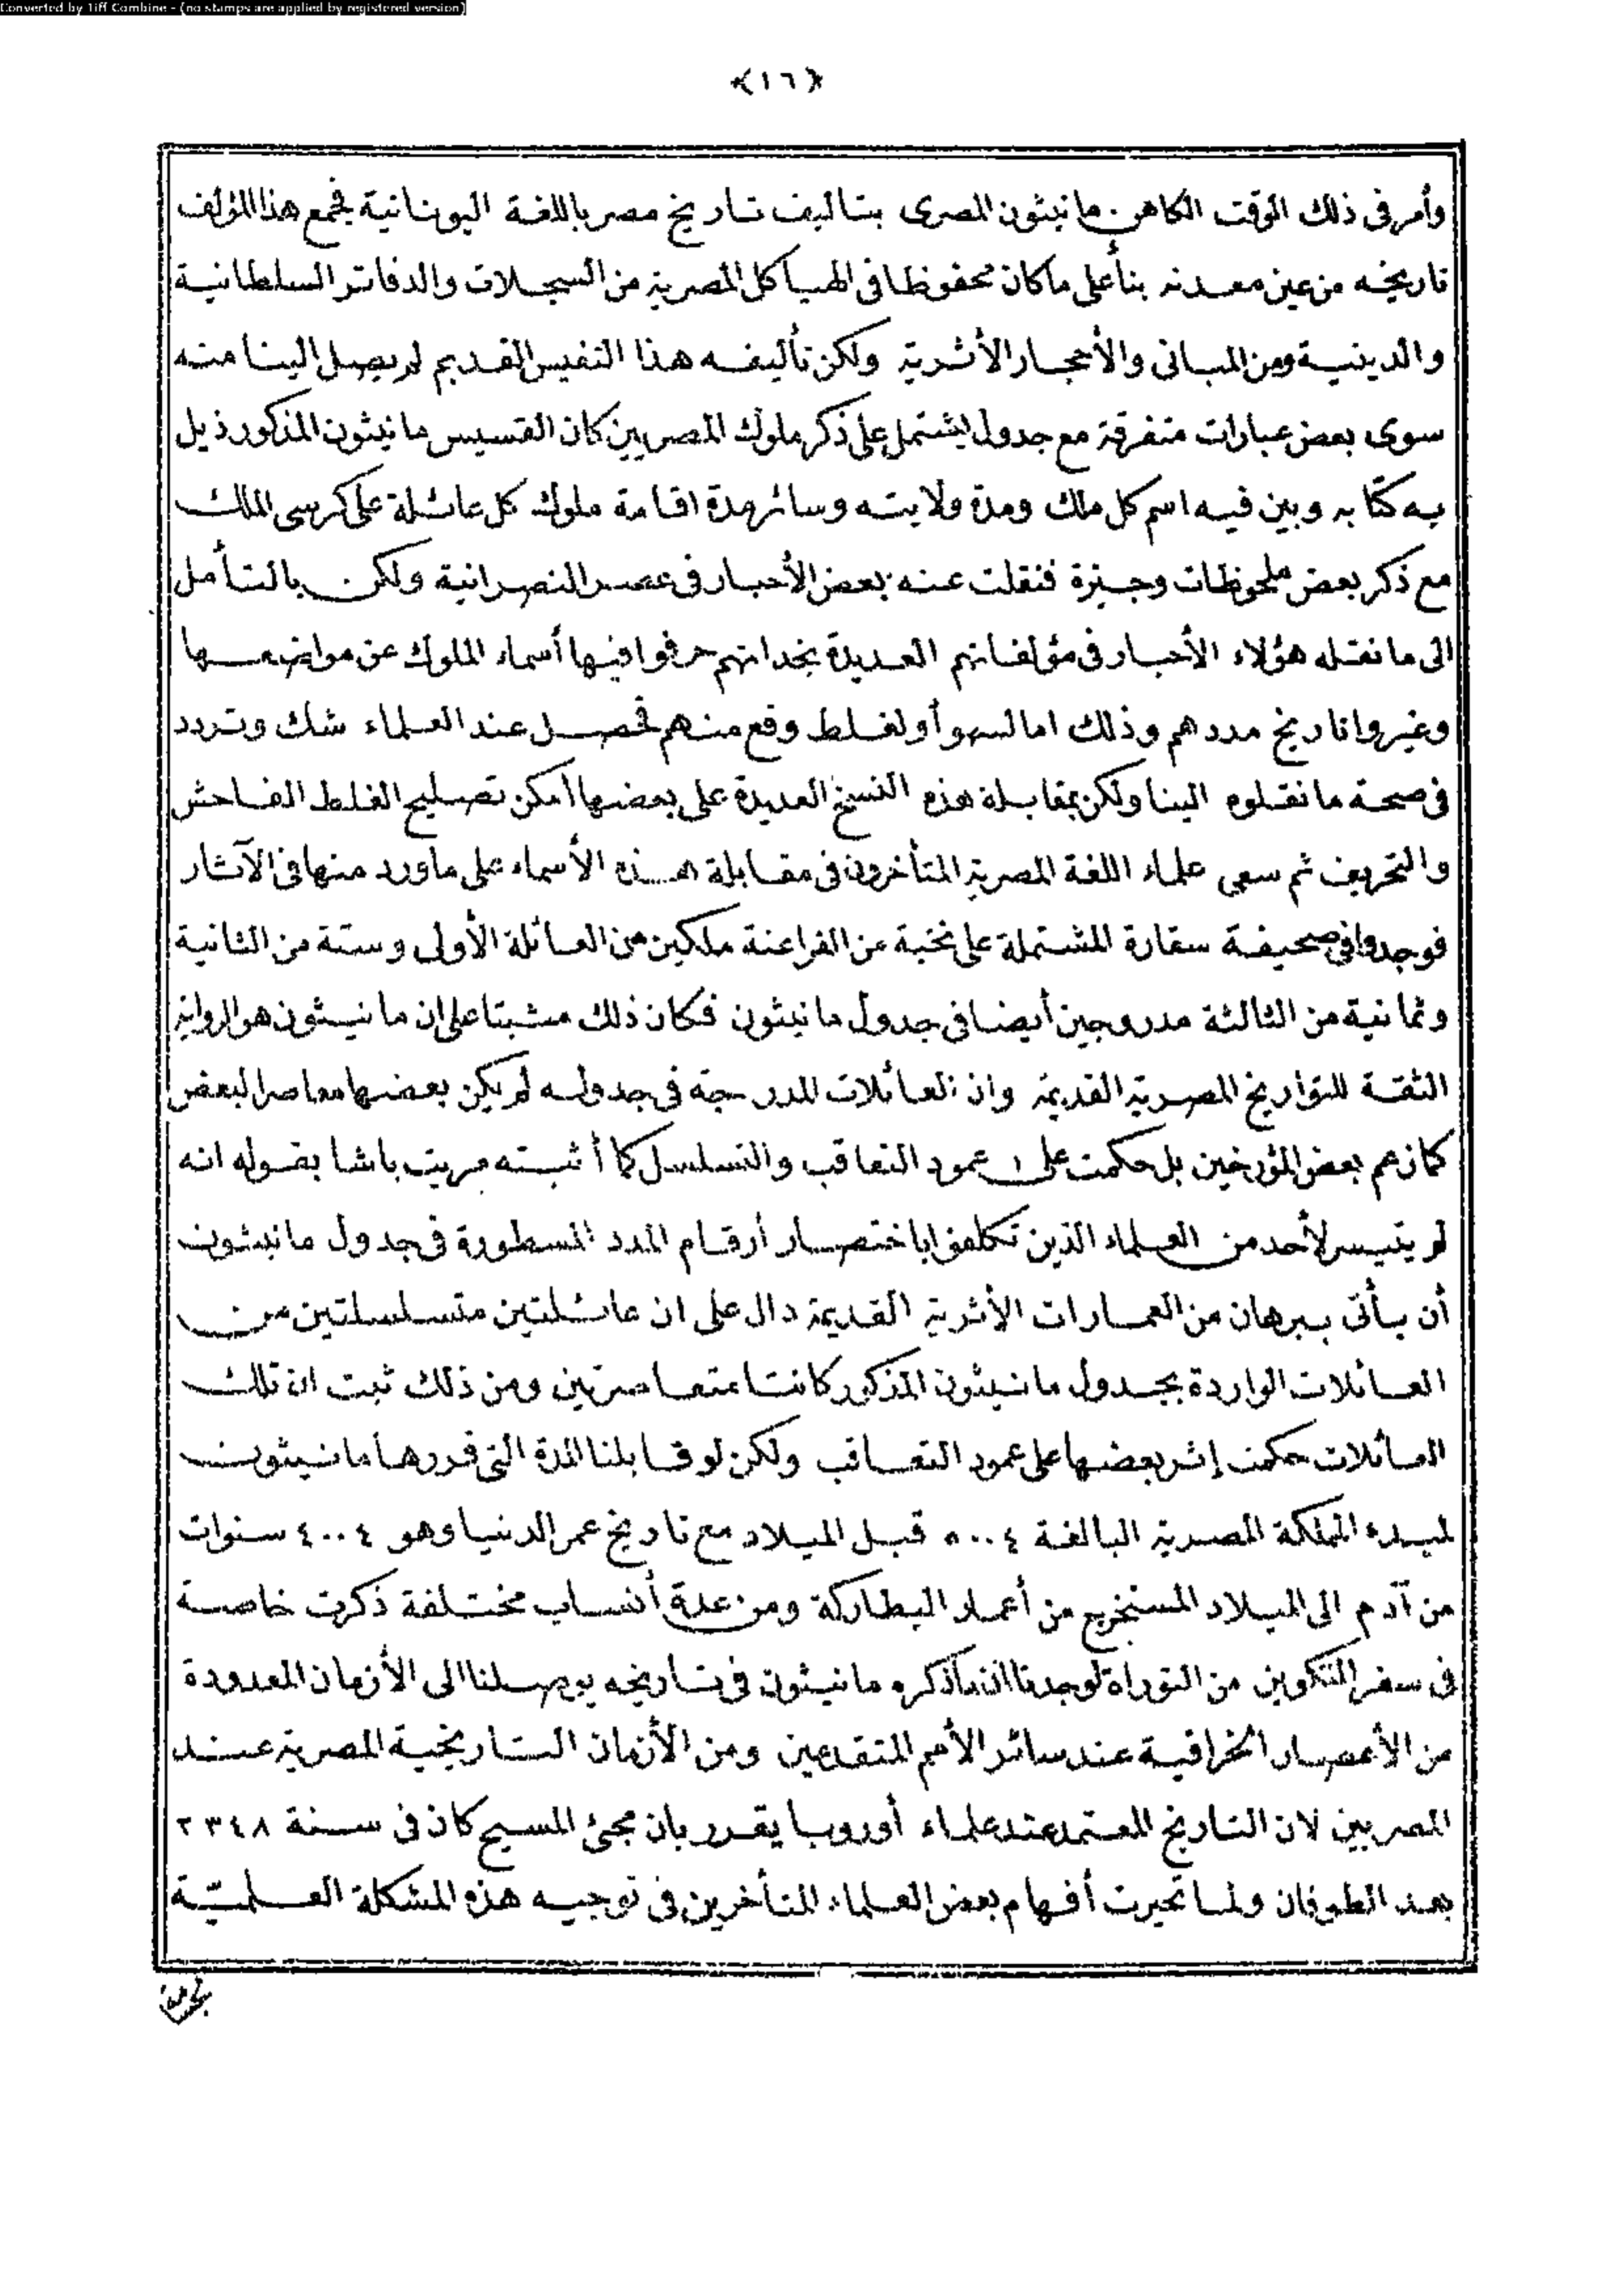 Converted by Tiff Combine - (no stamps are applied by registered version)
﴿١٦﴾
وأمر فى ذلك الوقت الكاهن مانيثون المصرى بتاليف تاريخ مصر باللغة اليونانية فجمع هذا المؤلف
تاريخه من عين معدنه بنأ على ما كان محفوظا فى الهياكل المصرية من السجلات والدفاتر السلطانية
والدينية ومن المبانى والأحجار الأثرية ولكن تأليفه هذا النفيس القديم لم يصل الينا منه
سوى بعض عبارات متفرقة مع جدول يشتمل على ذكر ملوك المصريين كان القسيس مانيثون المذكور ذيل
به كتابه وبين فيه اسم كل ملك ومدة ولايته وسائر مدة اقامة ملوك كل عائلة على كرسى الملك
مع ذكر بعض ملحوظات وجيزة فنقلت عنه بعض الأحبار فى عصر النصرانية ولكن بالتأمل
الى ما نقله هؤلاء الأحبار فى مؤلفاتهم العديدة نجد انهم حرفوا فيها أسماء الملوك عن مواضعها
وغيروا تاريخ مددهم وذلك اما لسهو أو لغلط وقع منهم فحصل عند العلماء شك وتردد
فى صحة ما نقلوه الينا ولكن بمقابلة هذه النسخ العديدة على بعضها أمكن تصليح الغلط الفاحش
والتحريف ثم سعى علماء اللغة المصرية المتأخرون فى مقابلة هذه الأسماء على ماورد منها فى الآثار
فوجدوا فى صحيفة سقارة المشتملة على نخبة من الفراعنة ملكين من العائلة الأولى وستة من الثانية
وثمانية من الثالثة مدروجين أيضا فى جدول مانيثون فكان ذلك مثبتا على ان مانيثون هو الراوية
الثقة للتواريخ المصرية القديمة وان العائلات المدرجة فى جدوله لم يكن بعضها معاصر لبعض
كما زعم بعض المؤرخين بل حكمت على عمود التعاقب والتسلسل كما أثبته مريت باشا بقوله انه
لم يتيسر لأحد من العلماء الذين تكلفوا باختصار أرقام المدد المسطورة فى جدول مانيثون
أن يأتى ببرهان من العمارات الأثرية القديمة دال على ان عائلتين متسلسلتين من
العائلات الواردة بجدول مانيثون المذكور كانتا متعاصرتين ومن ذلك ثبت ان تلك
العائلات حكمت إثر بعضها على عمود التعاقب ولكن لو قابلنا المدة التى قررها مانيثون
لمبدء المملكة المصرية البالغة ٥٠٠٤ قبل الميلاد مع تاريخ عمر الدنيا وهو ٤٠٠٤ سنوات
من آدم الى الميلاد المستخرج من أعمار البطاركة ومن عدة أنساب مختلفة ذكرت خاصة
فى سفر التكوين من التوراة لوجدنا ان ما ذكره مانيثون فى تاريخه يوصلنا الى الأزمان المعدودة
من الأعصار الخرافية عند سائر الأمم المتقدمين ومن الأزمان التاريخية المصرية عند
المصريين لان التاريخ المعتمد عند علماء أوروبا يقرر بان مجئ المسيح كان فى سنة ٢٣٤٨
بعد الطوفان ولما تحيرت أفهام بعض العلماء المتأخرين فى توجيه هذه المشكلة العلميّة